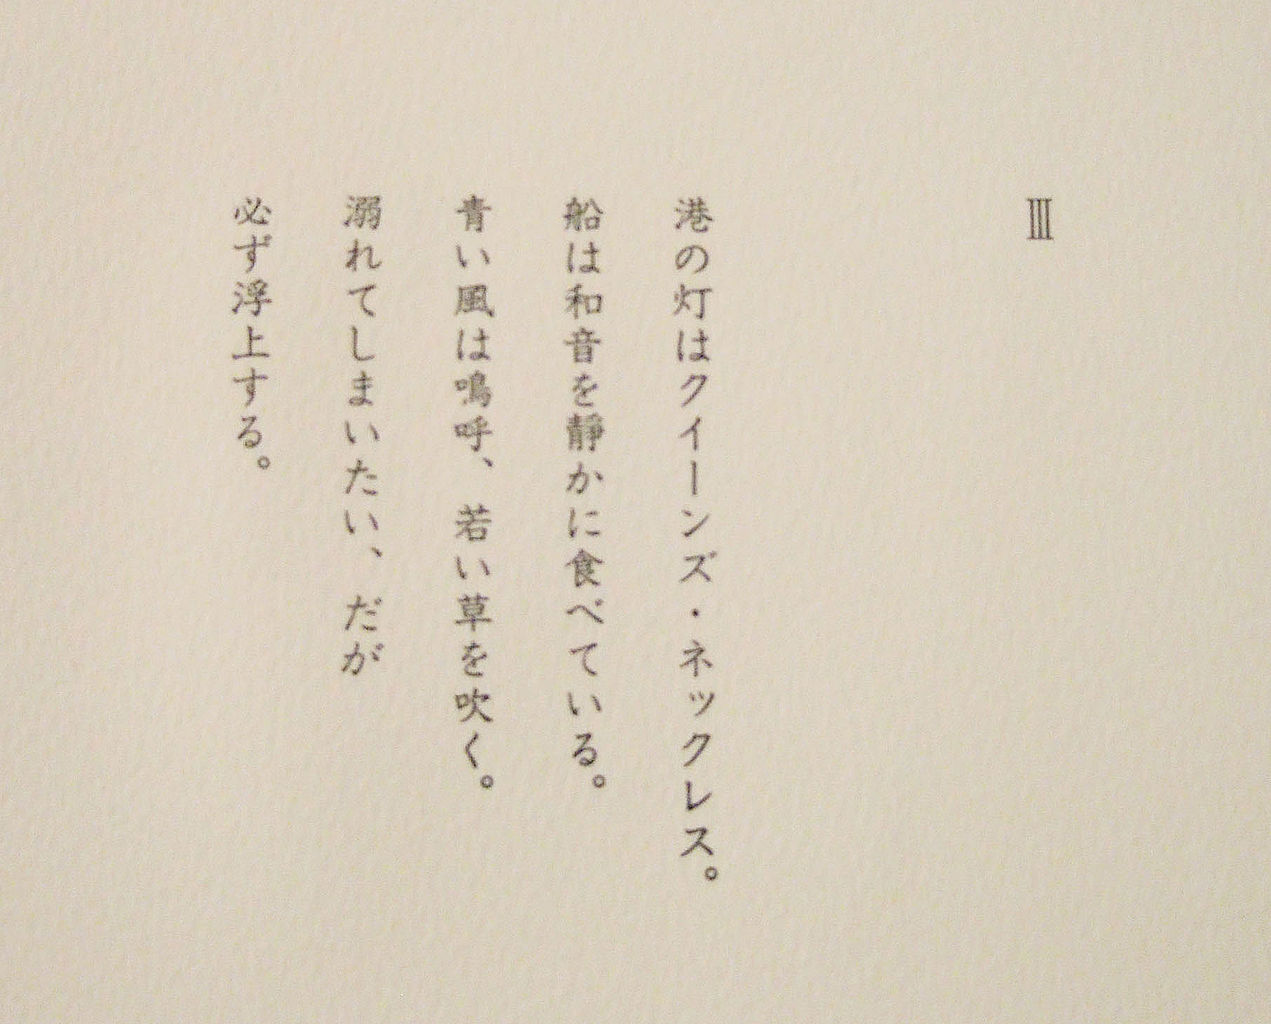 Ⅲ
港の灯はクイーンズ・ネックレス。
船は和音を靜かに食べている。
青い風は鳴呼、若い草を吹く。
溺れてしまいたい、だが
必ず浮上する。